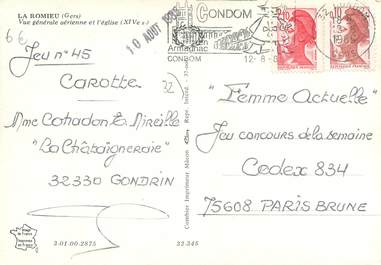 LA ROMIEU (Gers)
Vue générale aérienne et l'église (XIVe s.)
6€
Jeu n° 45
Carotte
32
Mme Cotradon La Mireille
"La Châtaigneraie"
32330 GONDRIN
10 AOUT
CONDOM
Armagnac
CONDOM
12-8-8
2,10
"Femme Actuelle"
Jeu concours de la semaine
Cedex 834
75608 PARIS BRUNE
Combier Imprimeur Mâcon
3-01-00-2875
32-345